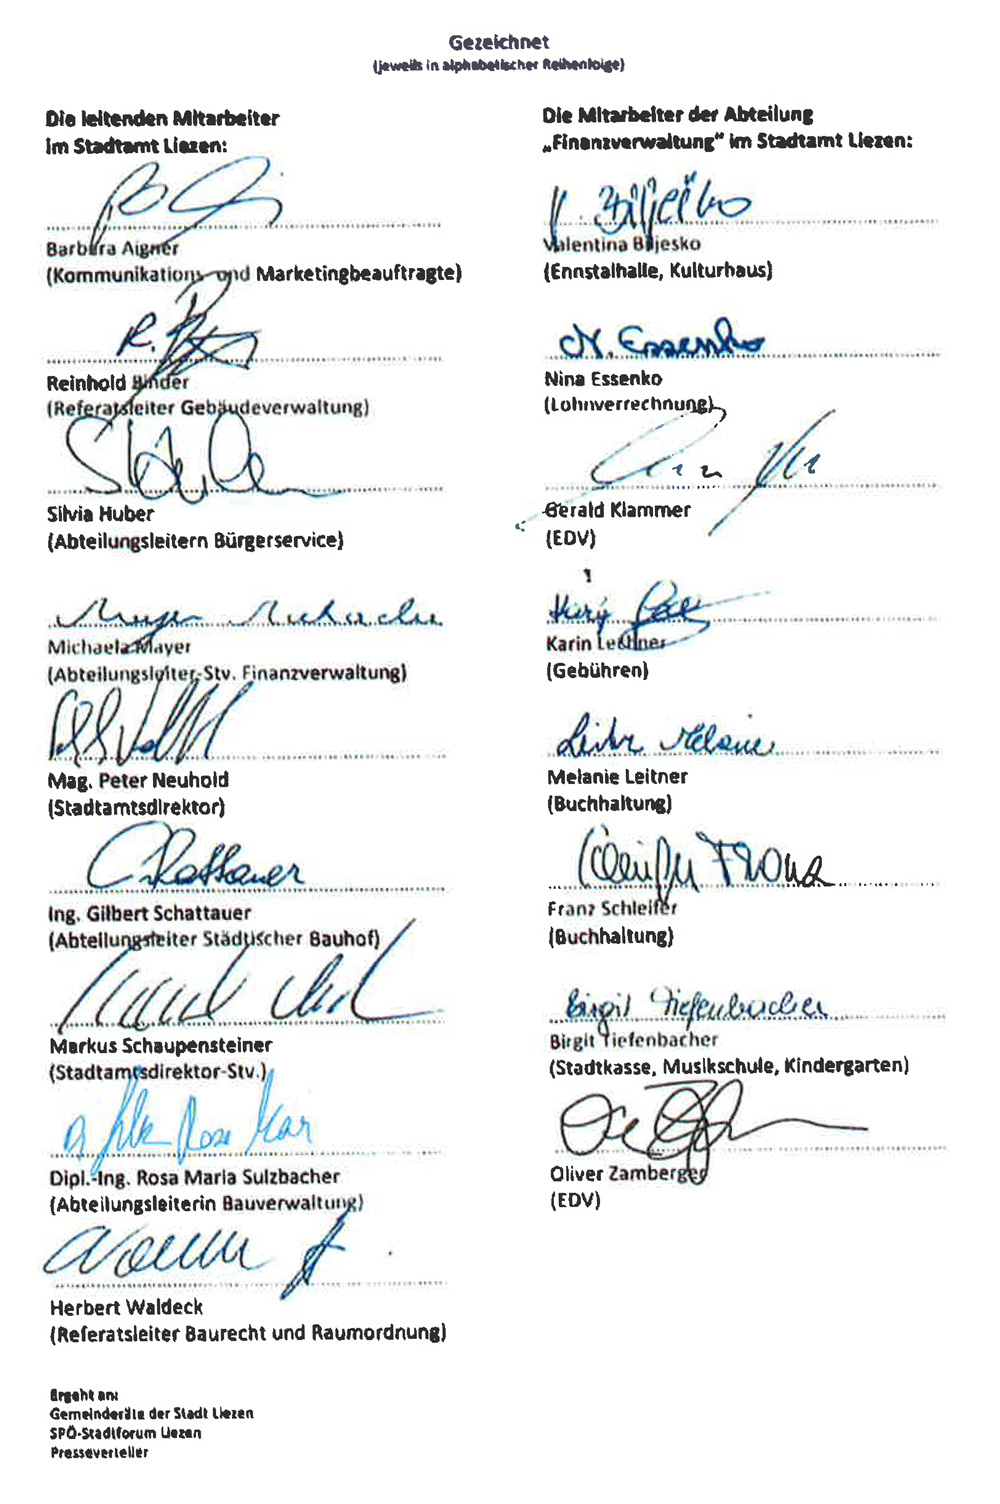 Gezeichnet
(jeweils in alphabetischer Reihenfolge)
Die leitenden Mitarbeiter
im Stadtamt Liezen:
Barbara Aigner
(Kommunikations- und Marketingbeauftragte)
R.
Reinhold Binder
(Referatsleiter Gebäudeverwaltung)
Silvia Huber
(Abteilungsleitern Bürgerservice)
Mayer Michaela
Michaela Mayer
(Abteilungsleiter-Stv. Finanzverwaltung)
Mag. Peter Neuhold
(Stadtamtsdirektor)
Schattauer
Ing. Gilbert Schattauer
(Abteilungsleiter Städtischer Bauhof)
Markus Schaupensteiner
(Stadtamtsdirektor-Stv.)
Dipl.-Ing. Rosa Maria Sulzbacher
(Abteilungsleiterin Bauverwaltung)
Herbert Waldeck
(Referatsleiter Baurecht und Raumordnung)
Die Mitarbeiter der Abteilung
„Finanzverwaltung“ im Stadtamt Liezen:
V. Biljesko
Valentina Biljesko
(Ennstalhalle, Kulturhaus)
N. Essenko
Nina Essenko
(Lohnverrechnung)
Gerald Klammer
(EDV)
Karin Leitner
(Gebühren)
Leitner Melanie
Melanie Leitner
(Buchhaltung)
Schleifer Franz
Franz Schleifer
(Buchhaltung)
Birgit Tiefenbacher
Birgit Tiefenbacher
(Stadtkasse, Musikschule, Kindergarten)
Oliver Zamberger
(EDV)
Ergeht an:
Gemeinderäte der Stadt Liezen
SPÖ-Stadtforum Liezen
Presseverteiler